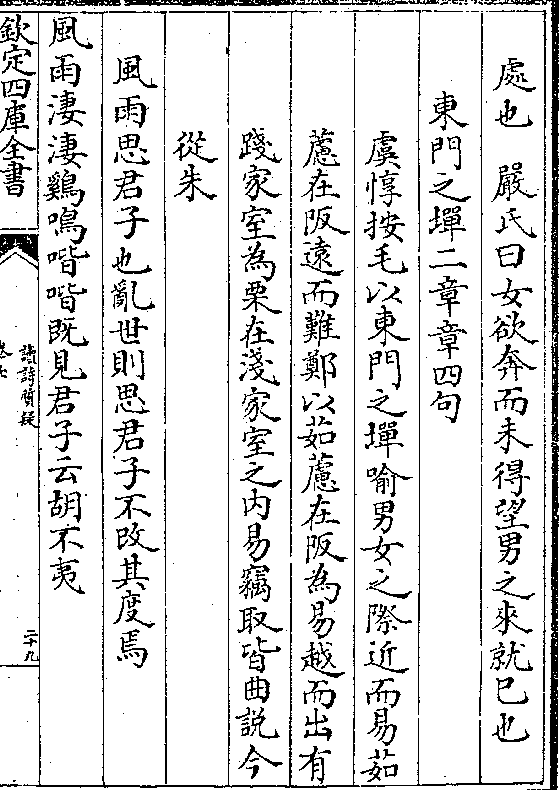 處也　嚴氏曰女欲奔而未得望男之來就已也
東門之墠二章章四句
虞惇按毛以東門之墠喻男女之際近而易茹
藘在阪遠而難鄭以茹藘在阪為易越而出有
踐家室為栗在淺家室之內易竊取皆曲説今
從朱
風雨思君子也亂世則思君子不改其度焉
風雨淒淒鷄鳴喈喈既見君子云胡不夷
欽定四庫全書
讀詩質疑
卷七
二十九